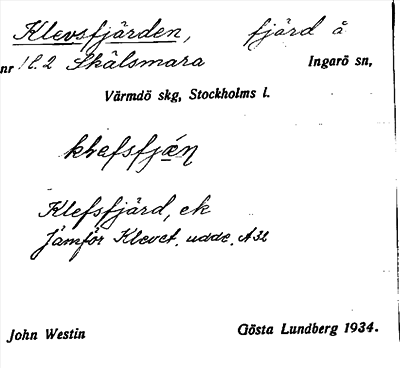 Klevsfjärden, fjärd å
nr 1 l. 2 Skälsmara Ingarö sn,
Värmdö skg, Stockholms l.
Klefsfjärd, ek
Jämför Klevet, udde, A32
John Westin Gösta Lundberg 1934.